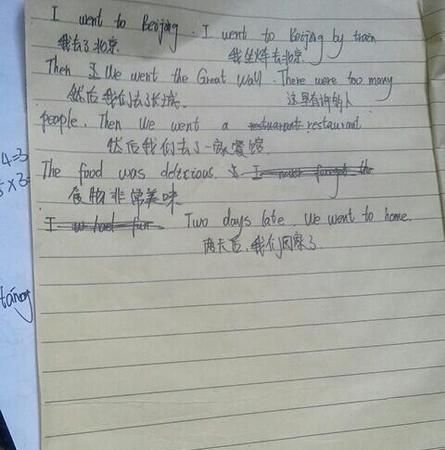 I went to Beijing. I went to Beijing by train
我去了北京 我坐火车去北京
Then I We went the Great Wall. There were too many
然后我们去了长城 这里有许多人
people. Then We went a restuarant restaurant
然后我们去了一家餐馆
The food was delicious. I must forget the
食物非常美味
I had fun Two days late. We went to home.
两天后，我们回家了
4=3
5×3
tāng